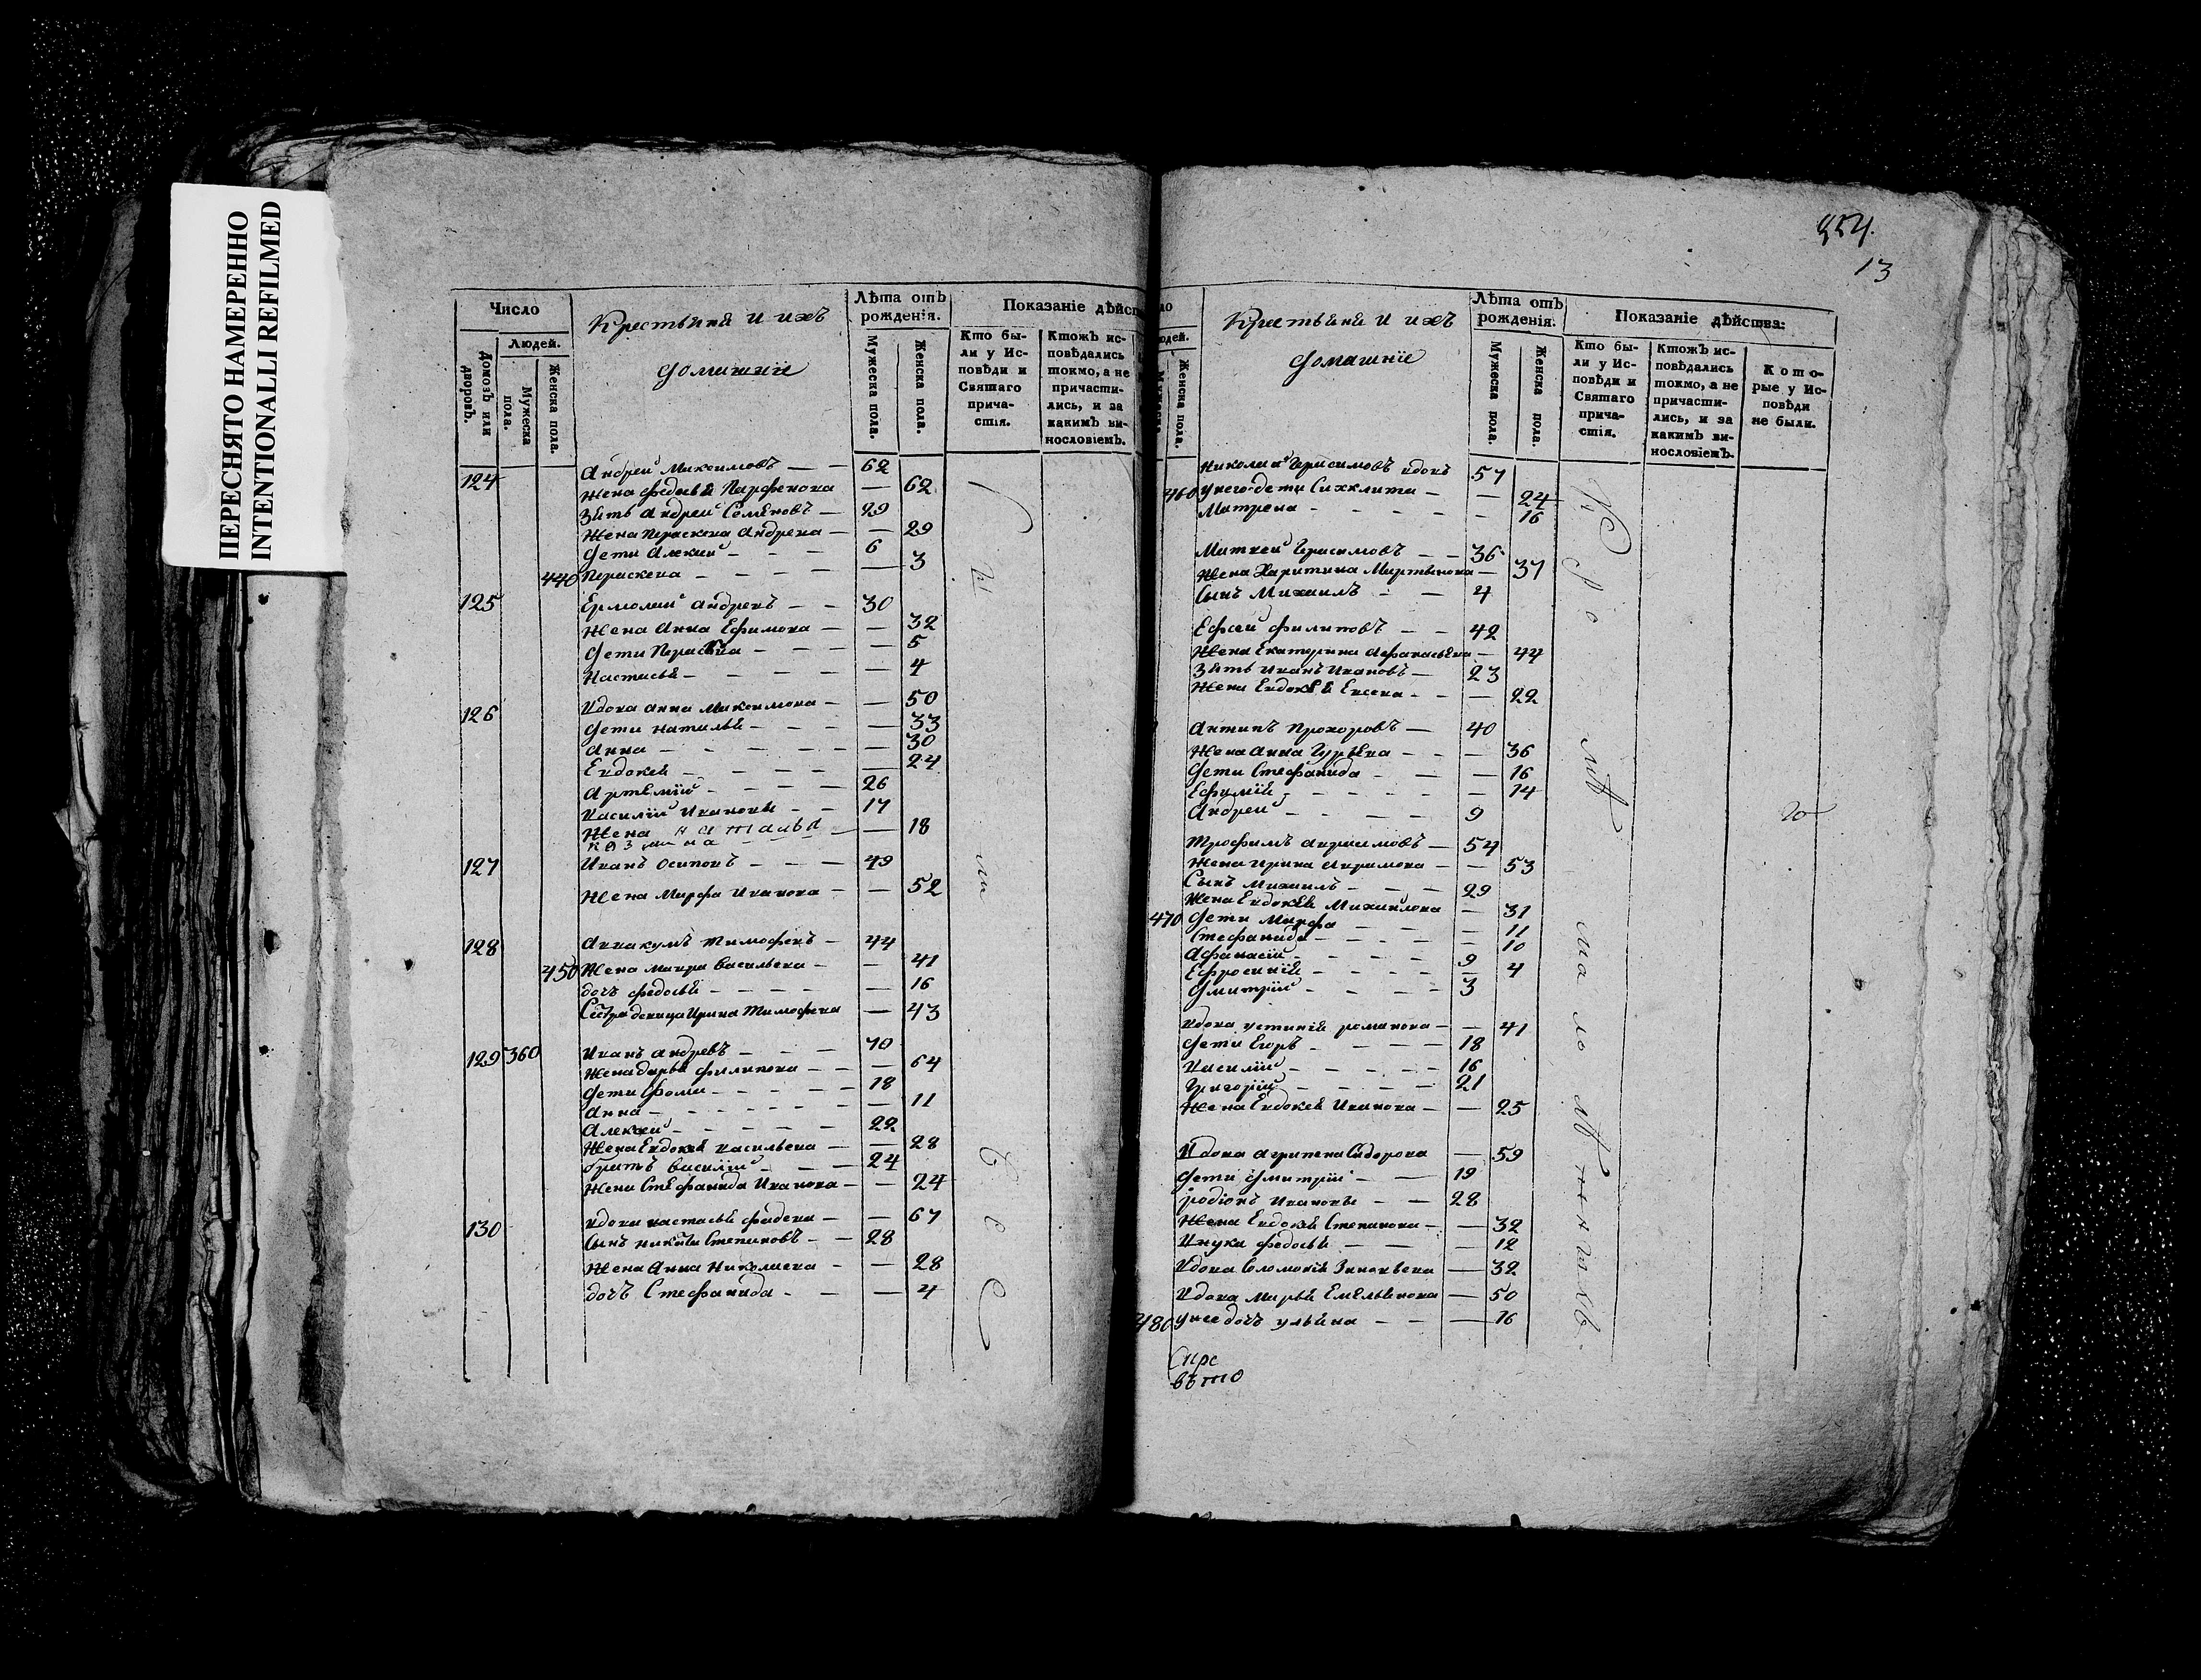 ПЕРЕСНЯТО НАМЕРЕННО
INTENTIONALLI REFILMED
13
Число
Людей.
Домовъ или дворовъ.
Мужеска пола.
Женска пола.
Крестьяня и ихъ
домашнїе
Лѣта отъ рожденія.
Мужеска пола.
Женска пола.
Показаніе дѣйст
Кто бы-
ли у Ис-
повѣди и
Святаго
прича-
стія.
Ктожъ ис-
повѣдались
токмо, а не
причасти-
лись, и за
какимъ ви-
нословіемъ.
124 Андрей Максимовъ — — 62
Жена Федосья Парфенова — 62
Зять Андрей Семеновъ — 29
Жена Параскева Андрева — — 29
Дети Алексий — — — 6
440 Параскева — — — — 3
125 Ермолай Андревъ — — 30
Жена Анна Ефимова — — 32
Дети Параскева — — — — 5
Настасья — — — — — 4
126 Вдова Анна Максимова — — 50
Дети Наталья — — — — 33
Анна — — — — — — 30
Евдокея — — — — — 24
Артемїй — — — — 26
Василїй Ивановы — — 17
Жена Наталья — — 18
Козмина
127 Иванъ Осиповъ — — — 49
Жена Марфа Иванова — — 52
128 Аввакумъ Тимофевъ — 44
450 Жена Мавра Васильева — — 41
дочь Федосья — — — — — 16
Сестра девица Ирина Тимофева — 43
129 360 Иванъ Андревъ — — — 70
Жена дарья Филипова — — — 64
Дети Фома — — — — 18
Анна — — — — — — 11
Алексей — — — — — 22
Жена Евдокея Васильева — — 28
братъ Василїй — — — 24
Жена Стефанида Иванова — — 24
130 вдова настасья Фадеева — — 67
Сынъ никита Степановъ — — 28
Жена Анна Николаева — — 28
дочь Стефанида — — — 4
Женска пола.
Крестьяня и ихъ
Домашнїе
Лѣта отъ рожденія.
Мужеска пола.
Женска пола.
Показаніе дѣйства:
Кто бы-
ли у Ис-
повѣди и
Святаго
прича-
стія.
Ктожъ ис-
повѣдались
токмо, а не
причасти-
лись, и за
какимъ ви-
нословіемъ.
Кото-
рые у Ис-
повѣди
не были.
Николай Герасимовъ вдовъ 57
460 у него дети — — 24
Матрена — — — — — 16
Матвей Герасимовъ — — 36
Жена Харитина Мартынова — 37
Сынъ Михаилъ — — 4
Ефсей Филиповъ — — 42
Жена Екатерина Афанасьева — 44
Зять Иванъ Ивановъ — 23
Жена Евдокея Евсева — — — 22
Антипъ Прохоровъ — 40
Жена Анна Гурьева — — — 36
Дети Стефанида — — — 16
Ефимїя — — — — — — 14
Андрей — — — — 9
Трофимъ — 54
Жена Ирина — — 53
Сынъ Михаилъ — — — 29
Жена Евдокея Михаилова — 31
470 Дети Марфа — — — 11
Стефанида — — — — 10
Афанасїй — — — — 9
Ефросинїя — — — — — 4
Дмитрїй — — — — 3
Вдова устинїя романова — — 41
Дети Егоръ — — — — 18
Василїй — — — — — 16
Григорїй — — — — 21
Жена Евдокея Иванова — — 25
Вдова Агрипена Сидорова — 59
Дети Дмитрїй — — 19
родїонъ Ивановы — — 28
Жена Евдокея Степанова — — 32
Внука Федосья — — — 12
Вдова Соломонїя Зиновьева — 32
Вдова Марья Емельянова — 50
480 у нее дочь ульяна — — — 16